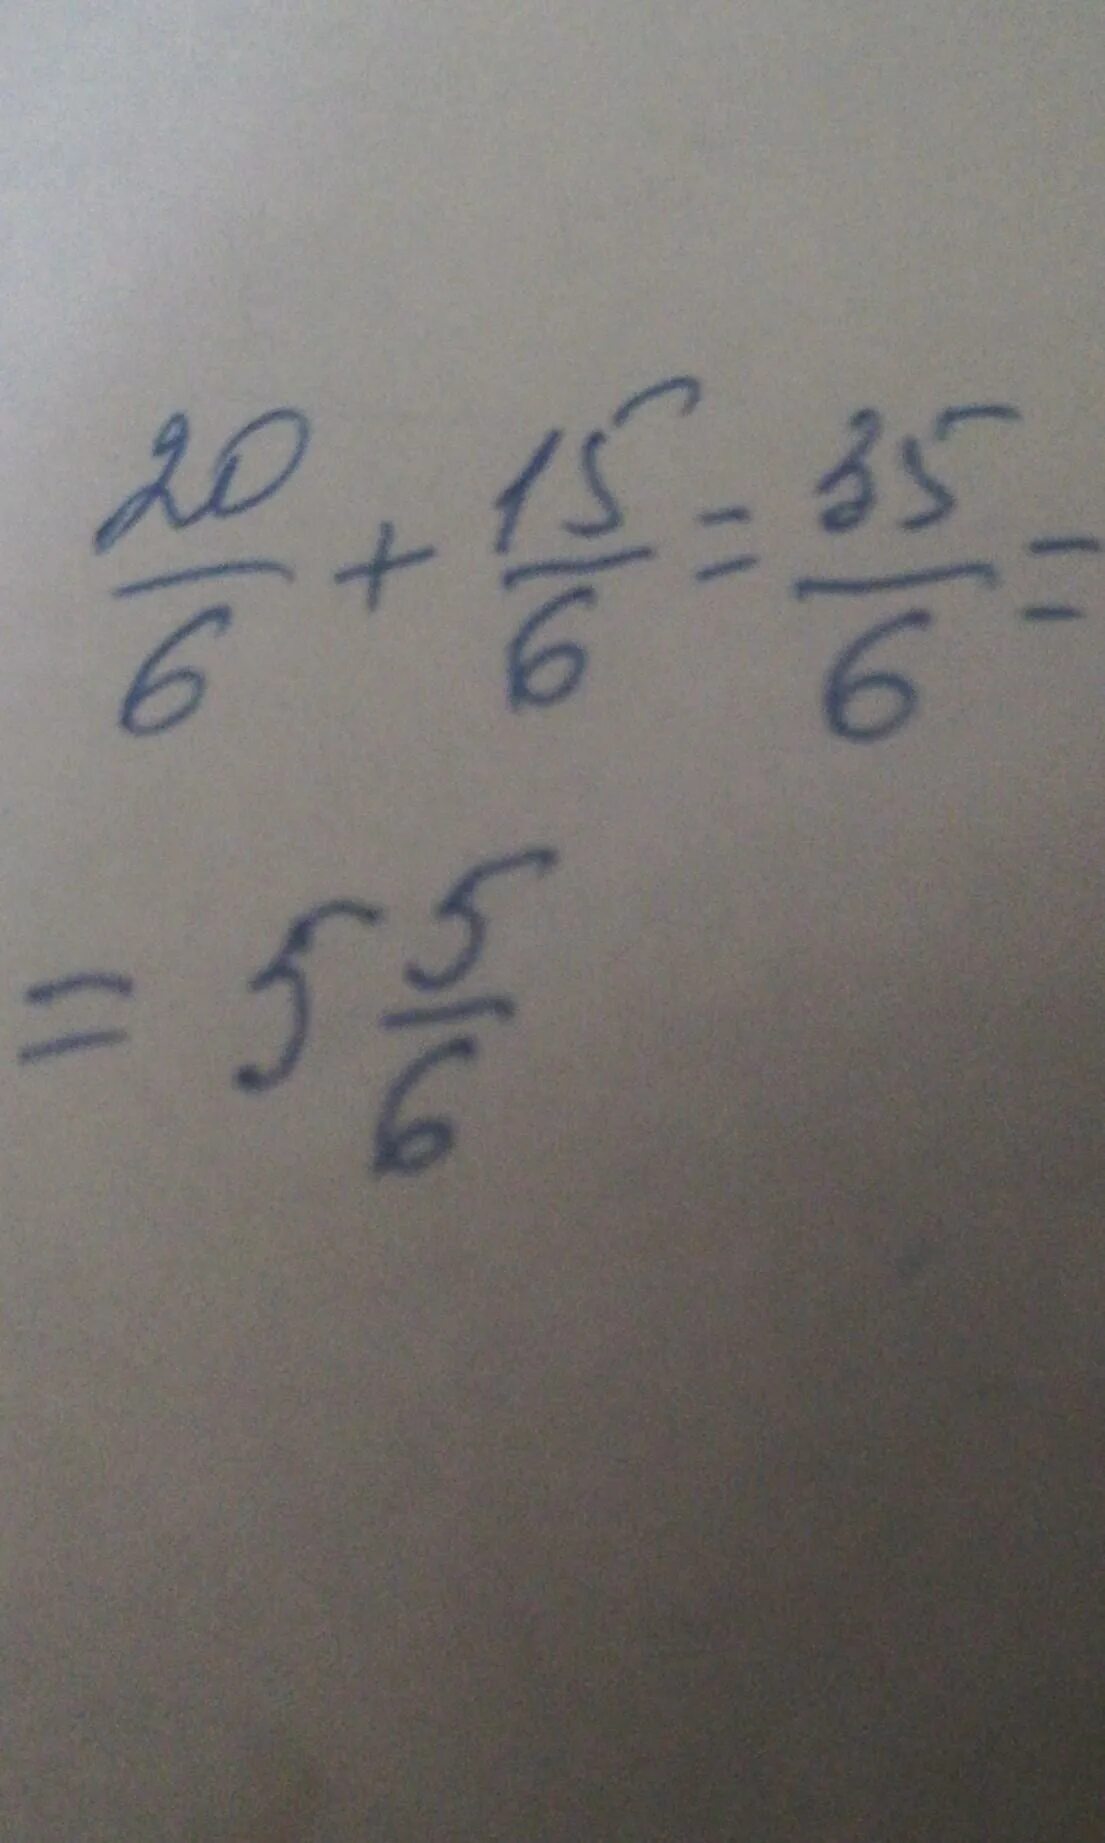 20/6 + 15/6 = 35/6 =
= 5 5/6